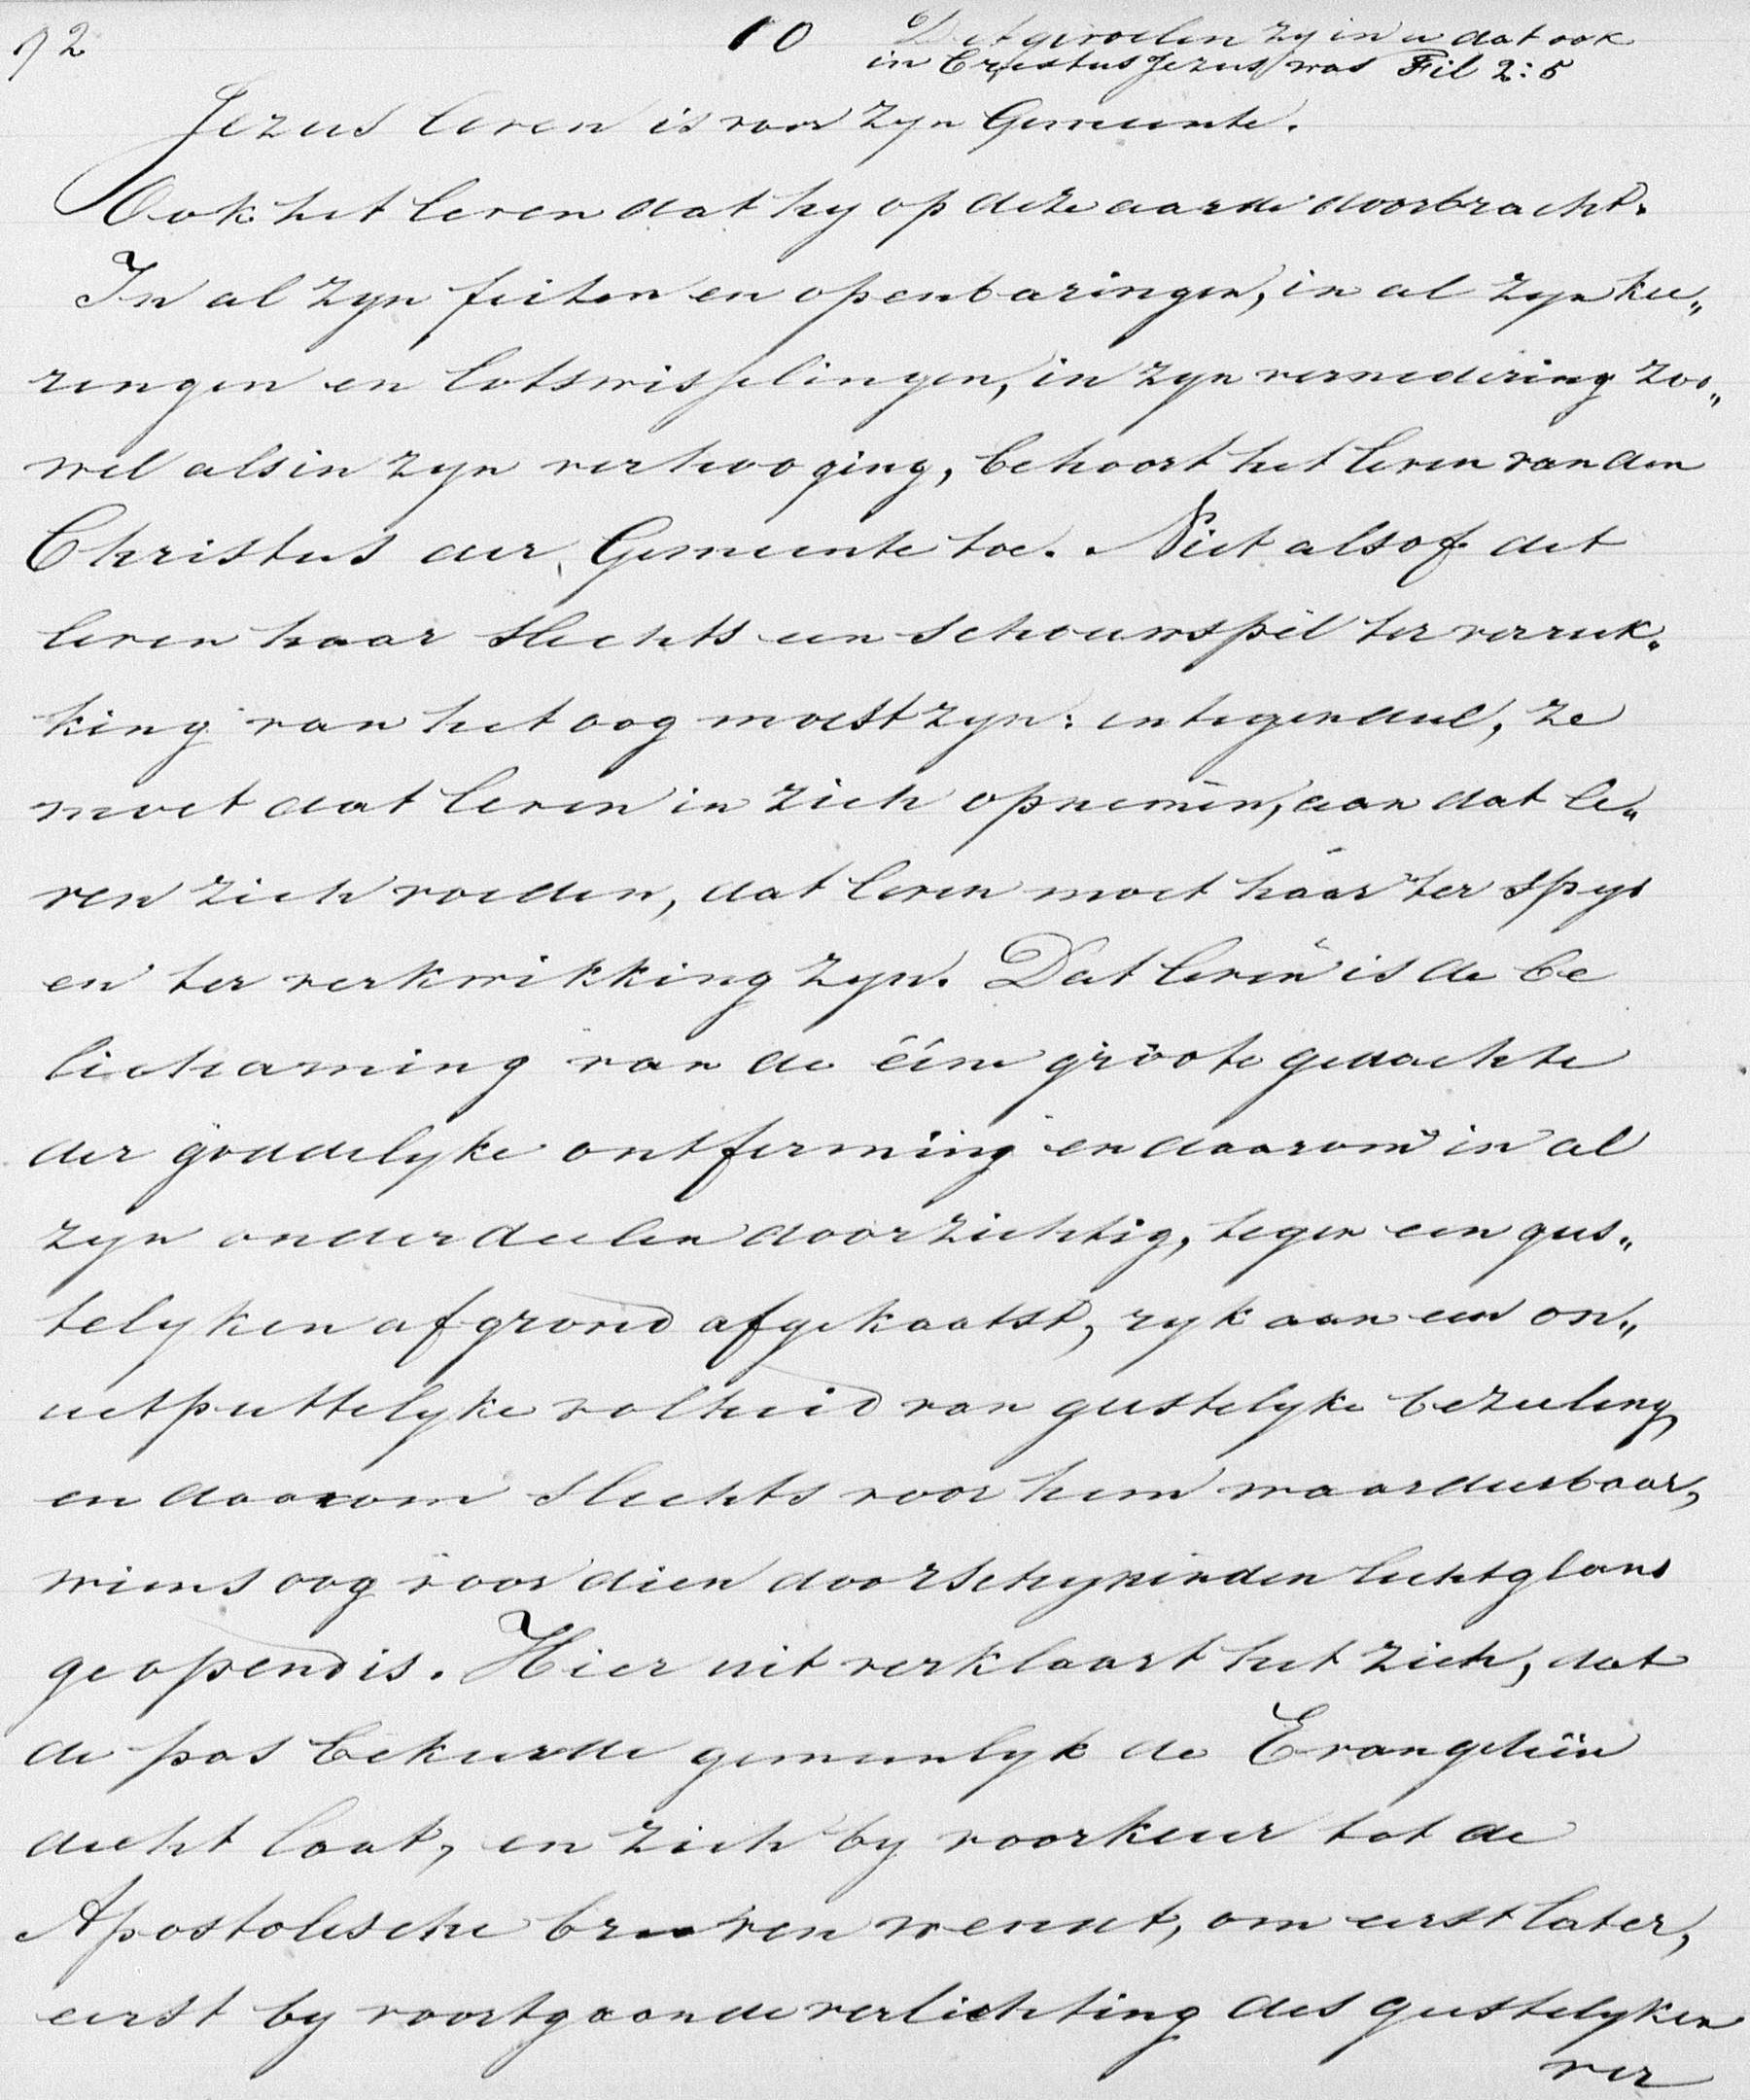 72 10 Dit gevoelen zy in u dat ook
in Cristus Jezus was Fil 2:5
Jezus leven is voor zyn Gemeente.
Ook het leven dat hy op deze aarde doorbracht.
In al zyn feiten en openbaringen, in al zyn kee„
ringen en lotswisselingen, in zyn vernedering zoo„
wel als in zyn verhooging, behoort het leven van den
Christus der Gemeente toe. Niet alsof dit
leven haar slechts een schouwspel ter verruk„
king van het oog moest zyn: integendeel, ze
moet dat leven in zich opnemen, aan dat le„
ven zich voeden, dat leven moet haar ter spys
en ter verkwikking zyn. Dat leven is de be
lichaming van de ééne groote gedachte
der goddelyke ontferming en daarom in al
zyn onderdeelen doorzichtig, tegen een gees„
telyken afgrond afgekaatst, ryk aan een on„
uitputtelyke volheid van geestelyke bezieling
en daarom slechts voor hem waardeerbaar,
wiens oog voor dien doorschynenden lichtglans
geopend is. Hier uit verklaart het zich, dat
de pas bekeerde gemeenlyk de Evangeliën
dicht laat, en zich by voorkeur tot de
Apostolische brieven wendt, om eerst later,
eerst by voortgaande verlichting des geestelyken
ver